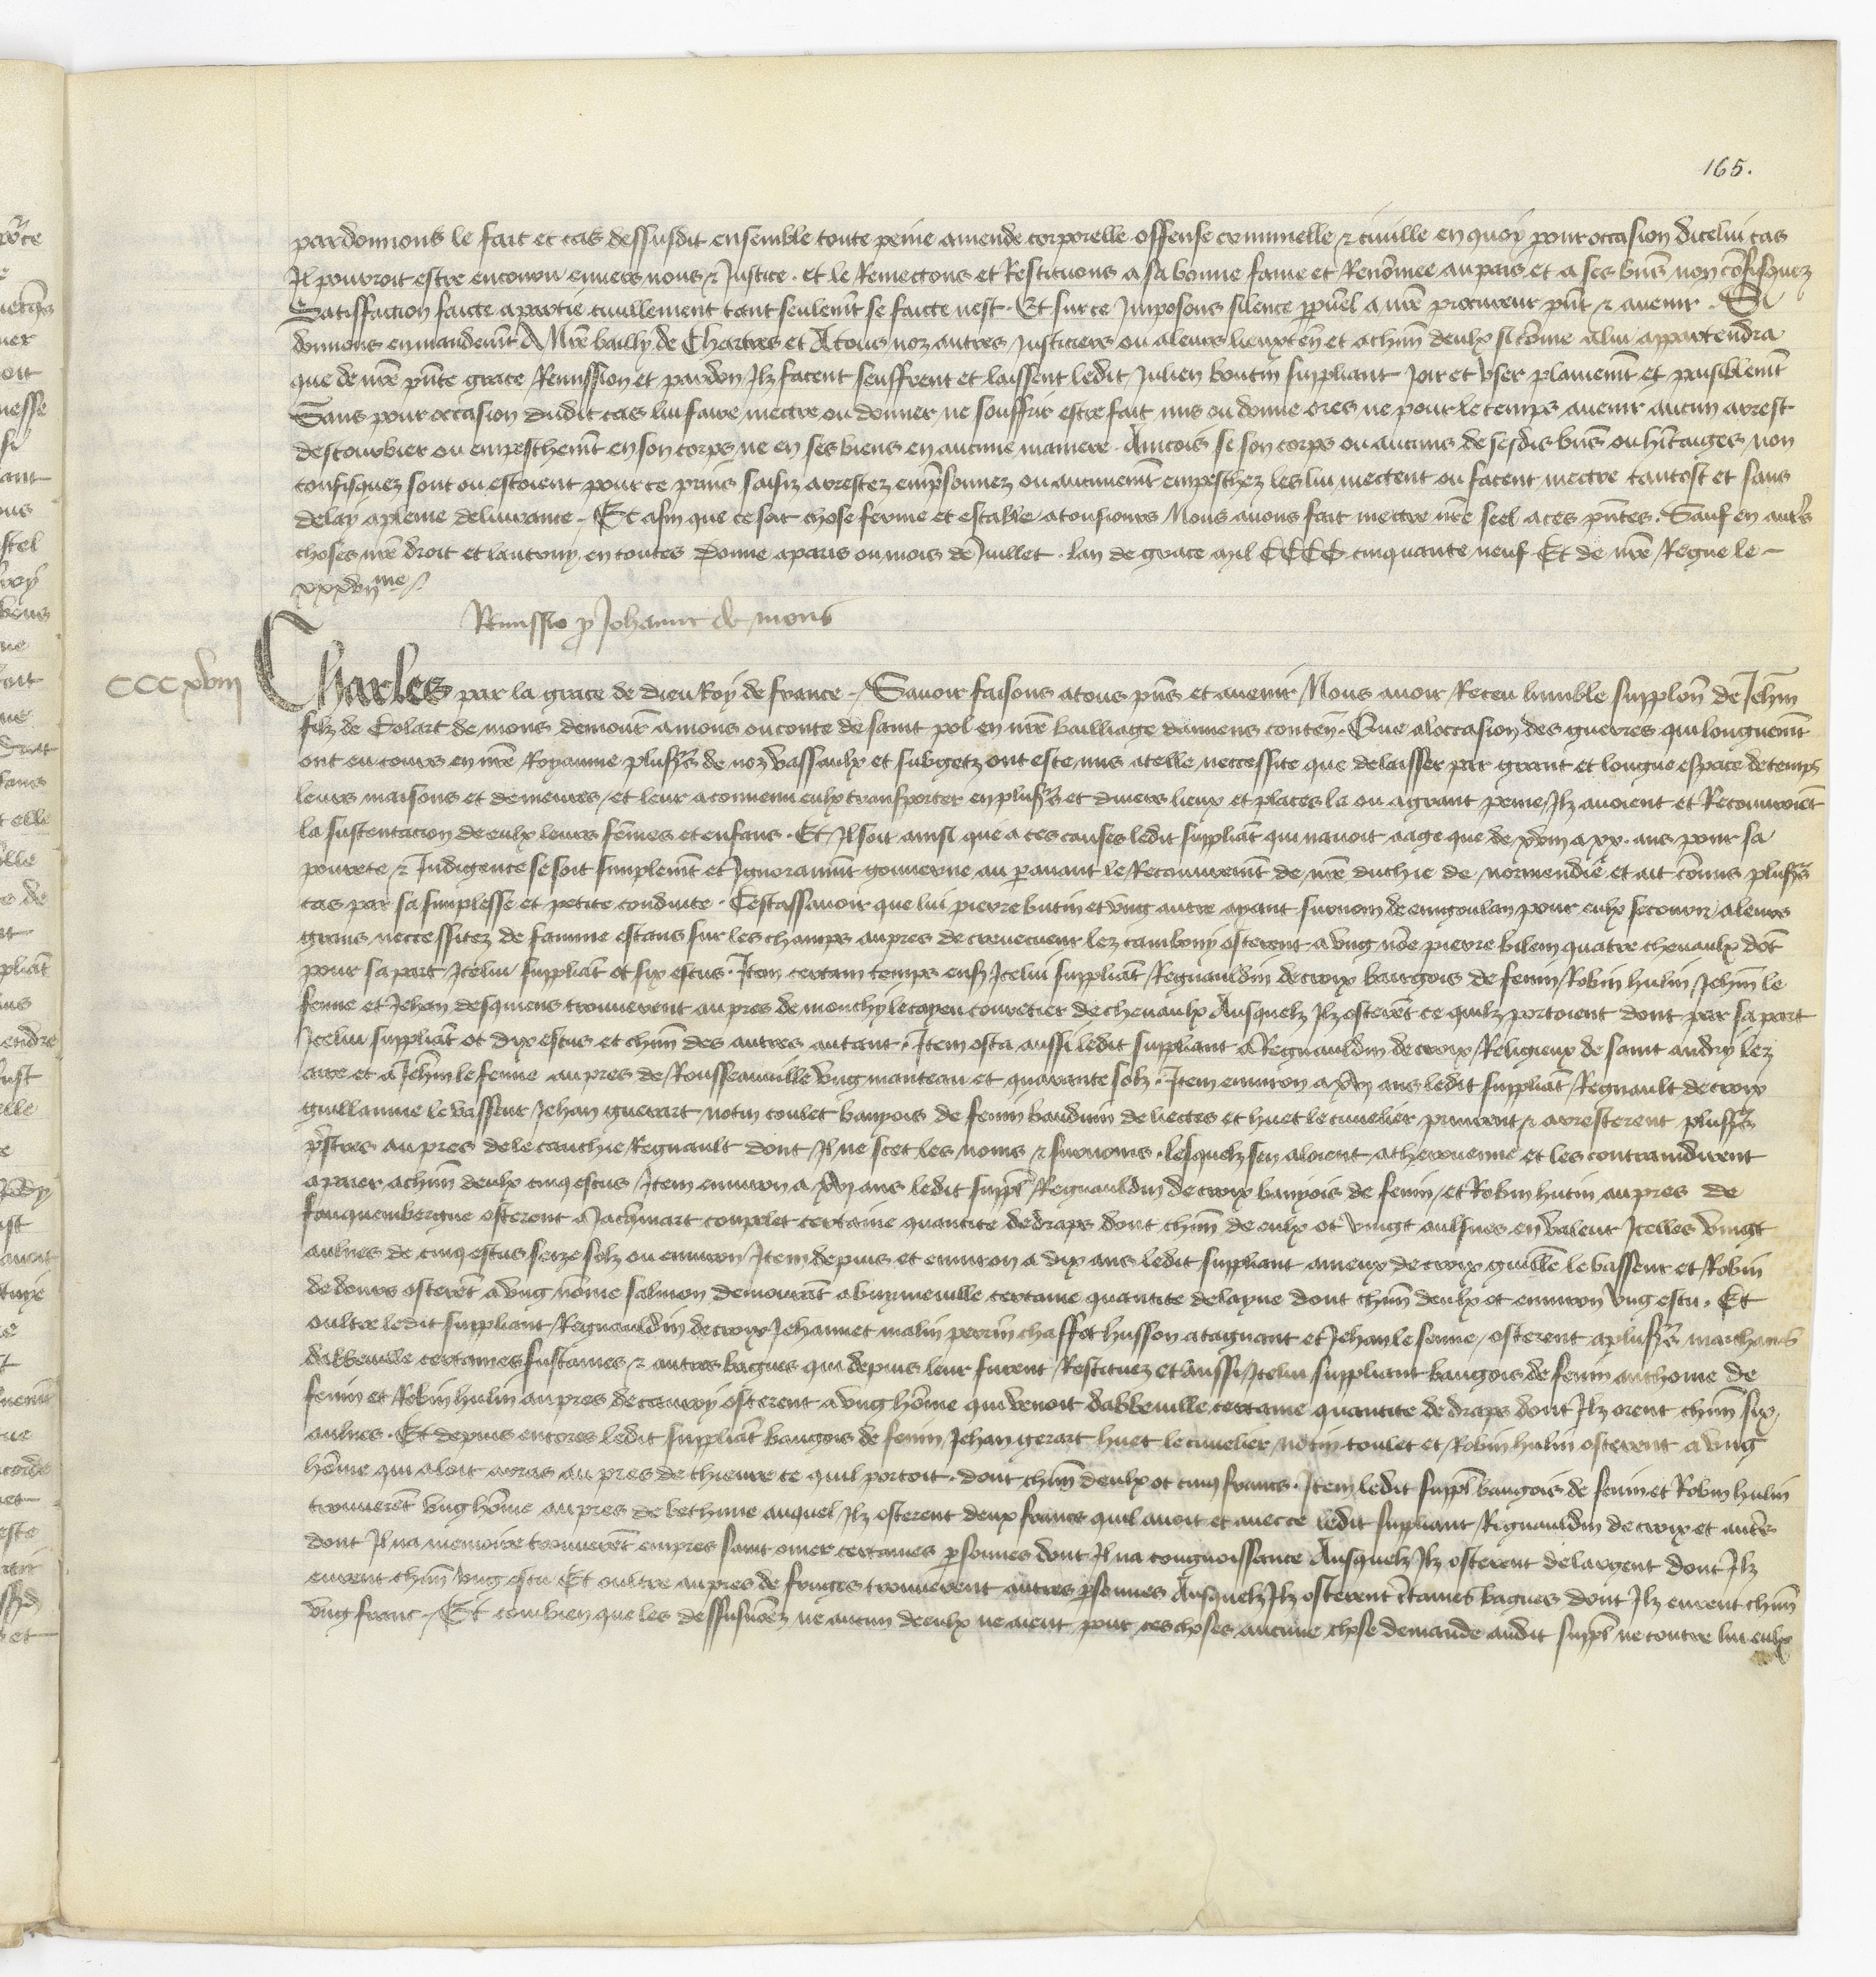 165.
pardonnons le fait et cas dessusdit ensemble toute peine amende corporelle offense criminelle & ciuille en quoy pour occasion dicelui cas
Il pourroit estre encouru enuers nous & Justice. et le Remectons et Restituons a sa bonne fame et Renõmee au pais et a ses biēs non cõfisquez
Satisffacion faicte a partie ciuillement tant seulemēt se faicte nest. Et sur ce Imposons silence ppetuel a nr̃e procureur pñt & auenir. Si
donnons en mandemēt A Nr̃e bailly de Chartres et A tous noz autres Justiciers ou a leurs lieuxten̄ et a chūn deulx si cõme a lui appartendra
que de nr̃e pñte grace Remission et pardon Ilz facent seuffrent et laissent ledit Julien boutin suppliant Joir et vser plainemēt et paisiblemēt
Sans pour occasion dudit cas lui faire mectre ou donner ne souffrir estre fait mis ou donne ores ne pour le temps auenir aucun arrest
destourbier ou empeschemēt en son corps ne en ses biens en aucune maniere. Aincois se son corps ou aucuns de sesdis biēs ou hr̃itaiges non
confisquez sont ou estoient pour ce prins saisiz arrestez emp̃sonnez ou aucunemēt empeschez les lui mectent ou facent mectre tantost et sans
delay a pleine deliurance. Et afin que ce soit chose ferme et estable a tousiours Nous auons fait mectre nr̃e seel a ces pñtes. Sauf en autr̃s
choses nr̃e droit et lautruy en toutes Donne a paris ou mois de Juillet. lan de grace mil CCCC cinquante neuf Et de nr̃e Regne le
xxxvijme./.
Remissio p Johanne de mons
CCCxviij Charles par la grace de dieu Roy de france. Sauoir faisons a tous pñs et auenir Nous auoir Receu lumble supplōn de Jehñ
filz de Colart de mons demour̃ a mons ou conte de saint pol en nr̃e bailliage damiens conten̄. Que a loccasion des guerres qui longuemēt
ont eu cours en nr̃e Royaume plus̃rs de noz vassaulx et subgetz ont este mis a telle neccessite que de laisser par grant et longue espace de temps
leurs maisons et demeures, et leur a conuenu eulx transporter en plus̃rs et diuers lieux et places la ou a grant peine Ilz auoient et Recouuroiēt
la sustentacion de eulx leurs fēmes et enfans. Et Il soit ainsi que a ces causes ledit suppliāt qui nauoit aage que de xviij a xx. ans pour sa
pourete & Indigence se soit simplemēt et Ignorammēt gouuerne au parauant le Recouuremēt de nr̃e duchie de normendie et ait cõmis plus̃rs
cas par sa simplesse et petite conduite. Cestassauoir que lui pierre butin et vng autre ayant surnom de engoulan pour eulx secourir a leurs
grans neccessitez de famine estans sur les champs aupres de creuecueur lez cambray osterent a vng nõe pierre bilem quatre cheuaulx dõt
pour sa part Icelui suppliāt ot six escus. Item certain temps ens̃ Icelui suppliāt Regnauldin de croix baugois de fenin Robin hulin Jehñ le
senne et Jehan desquiens trouuerent aupres de monchy le cayeu couretier de cheuaulx Ausquelz Ilz osterēt ce quilz portoient dont par sa part
Icelui suppliāt ot dix escus et chūn des autres autant. Item osta aussi ledit suppliant a Regnauldin de croix Religieux de saint andry lez
aire et a Jehñ le senne aupres de Rousseauuille vng manteau et quarante solz. Item enuiron a xvj ans ledit suppliāt Regnault de croix
guillaume le vasseur Jehan guerart notin coulet baugois de fenin bauduin de liectes et huet le cuuelier prindrent & arresterent plus̃rs
pr̃stres aupres de le cauchie Regnault dont Il ne scet les noms & surnoms. lesquelz sen aloient a therouenne et les contraindirent
a paier a chūn deulx cinq escus Item enuiron a xvj ans ledit suppl̃ Regnauldin de croix baugois de fenin, et Robin hutin aupres de
fauquembergue osterent a Jaq̃mart couplet certaine quantite de draps dont chūn de eulx ot vingt aulsnes en valeur Icelles vingt
aulnes de cinq escus seize solz ou enuiron Item depuis et enuiron a dix ans ledit suppliant amieux de croix guill̃e le vasseur et Robin
de dours osterēt a vng nõme salmon demourāt a buyneuille certaine quantite de layne dont chūn deulx ot enuiron vng escu. Et
oultre ledit suppliant Regnauldin de croix Jehannet malin perrin chaffot husson atagnant et Jehan le senne, osterent a plus̃rs marchans
dabbeuille certaines fustaines & autres bagues qui depuis leur furent Restituez et aussi Icelui suppliant baugois de fenin anthoine de
fenin et Robin hulin aupres de cauroy osterent a vng hõme qui venoit dabbeuille certaine quantite de draps dont Ilz orent chūn six
aulnes. Et depuis encores ledit suppliāt baugois de fenin Jehan gerart huet le cuuelier notin coulet et Robin hulin osterent a vng
hõme qui aloit arras aupres de thieure ce quil portoit. dont chūn deulx ot cinq frans. Item ledit suppl̃ baugois de fenin et Robin hulin
trouuerēt vng hõme aupres de bethune auquel Ilz osterent deux frans quil auoit et auec ce ledit suppliant Regnauldin de croix et autr̃s
dont Il na memoire trouuerēt empres saint omer certaines psonnes dont Il na congnoissance Ausquelz Ilz osterent de largent dont Ilz
eurent chūn vng escu Et oultre aupres de fruges trouuerent autres psonnes Ausquelz Ilz osterent c̃taines bagues dont Ilz eurent chūn
vng franc. Et combien que les dessusnõez ne aucun de eulx ne aient pour ces choses aucune chose demande audit suppl̃ ne contre lui eulx